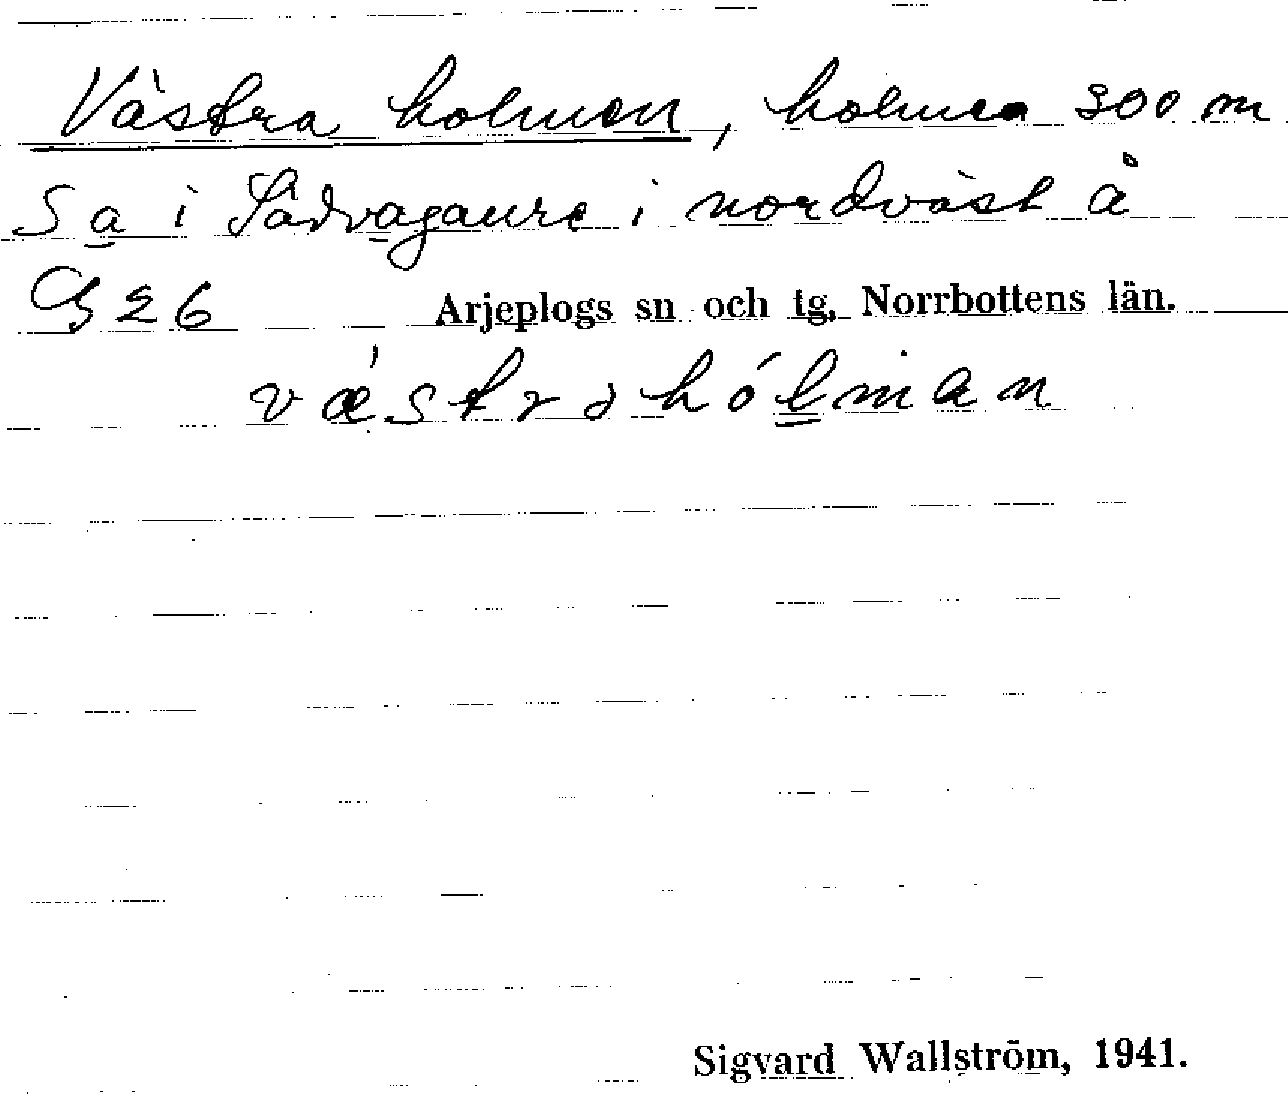 Västra holmen, holmen 300 m
S a i Sädvagaure i nordväst å
G 26 Arjeplogs sn och tg, Norrbottens län.
vǽstrahólman
Sigvard Wallström, 1941.